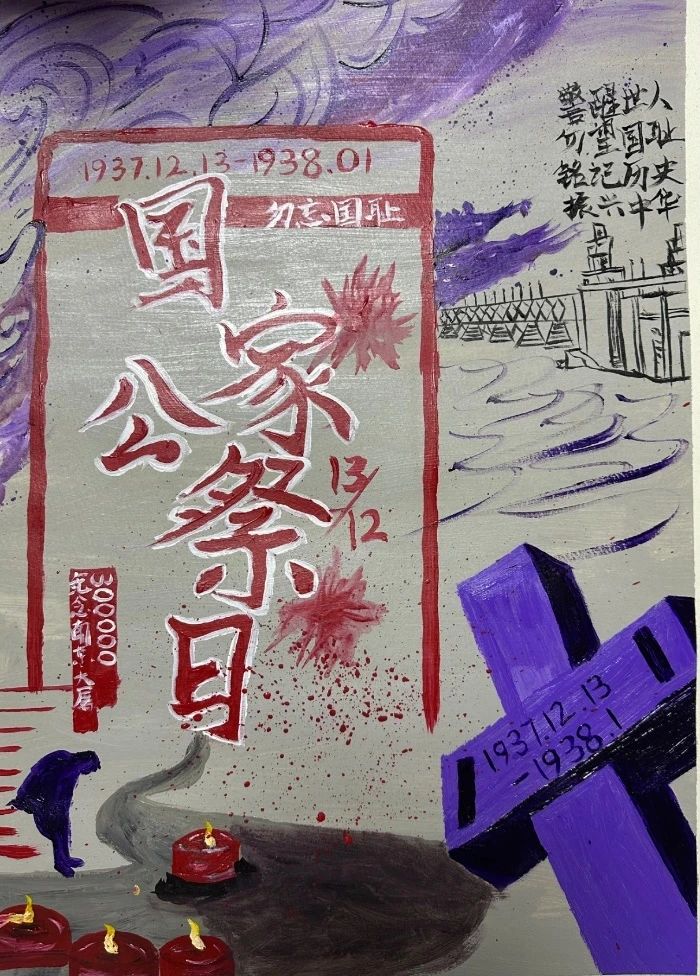 1937.12.13-1938.01
勿忘国耻
国家公祭日
13/12
300000
纪念南京大屠
警醒世人
勿重国耻
铭记历史
振兴中华
1937.12.13
-1938.1